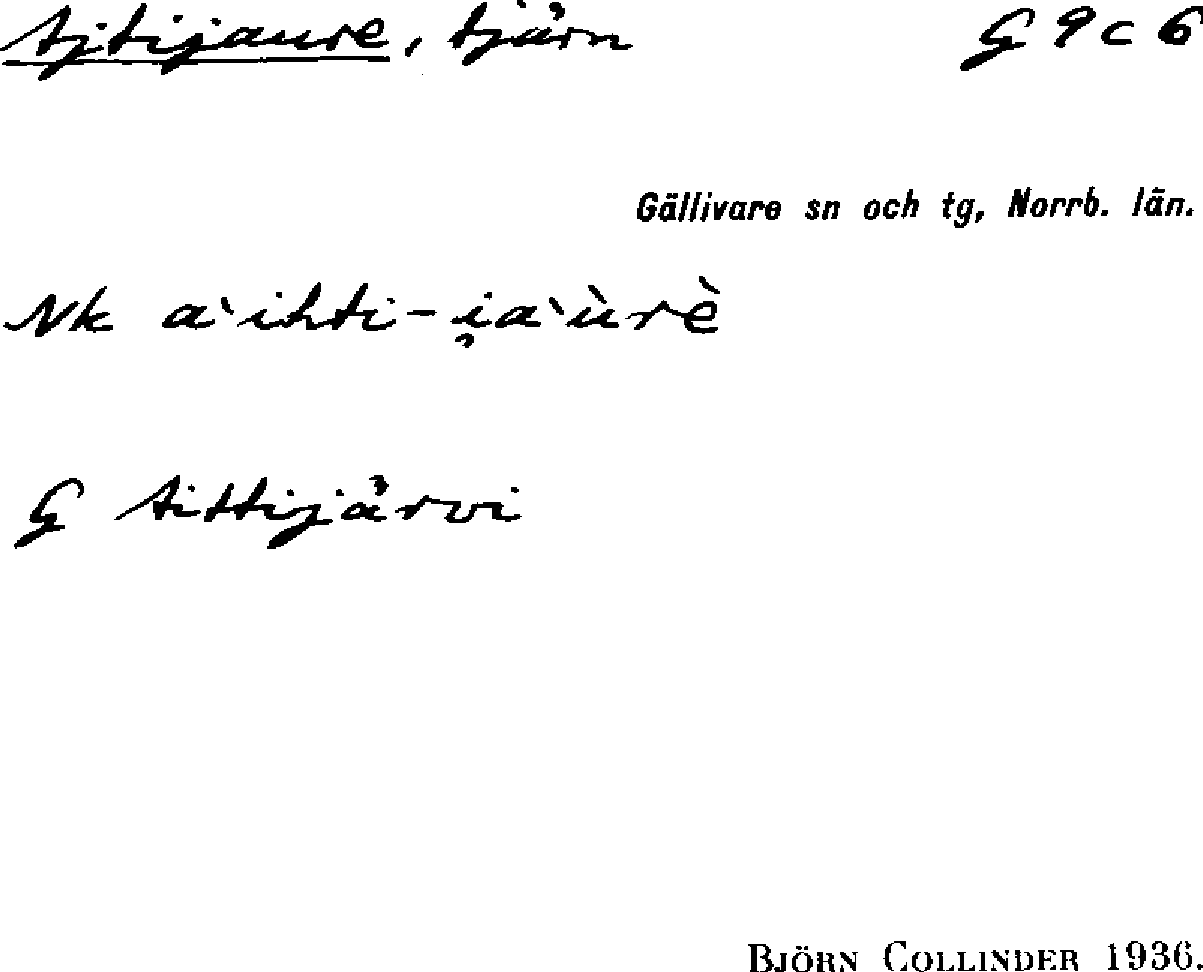 Ajtijaure, tjärn G 9 c 6
Gällivare sn och tg, Norrb. län.
Nk a`ihti-i̯a`ùrè
G Aittijärvi
BJÖRN COLLINDER 1936.